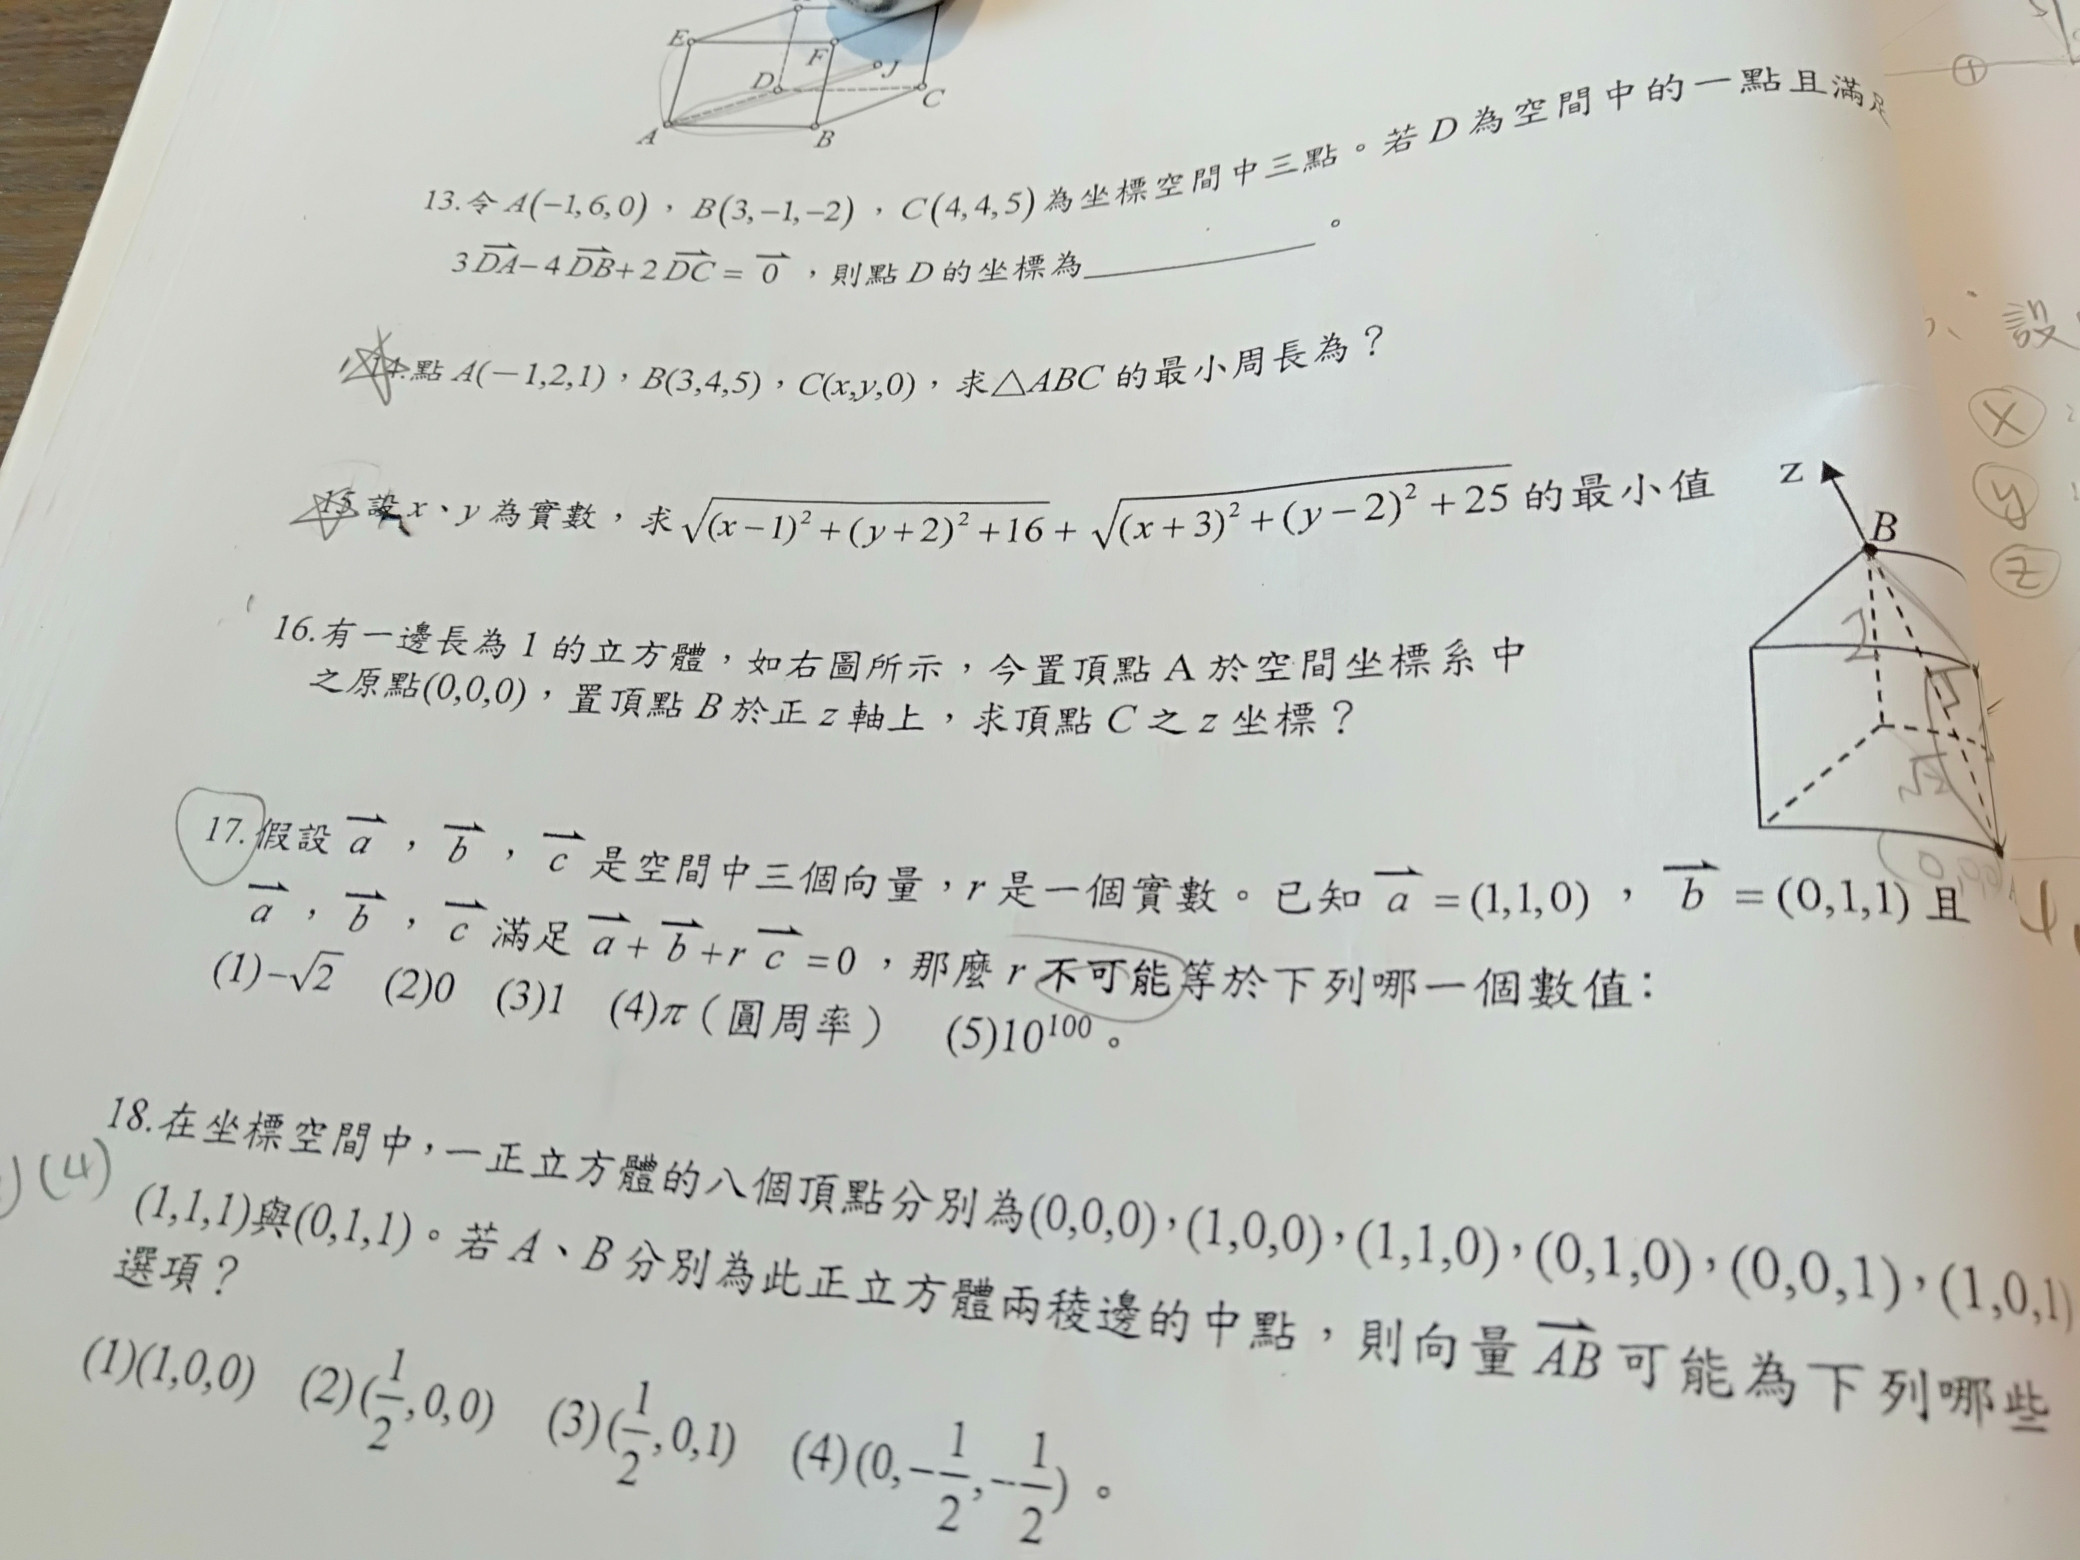 E
F
J
D
C
A
B
13.令A(−1,6,0),B(3,−1,−2),C(4,4,5)為坐標空間中三點。若D為空間中的一點且滿足
3DA−4DB+2DC=0,則點D的坐標為________。
14.點A(−1,2,1),B(3,4,5),C(x,y,0),求△ABC的最小周長為?
15.設x、y為實數,求√((x−1)²+(y+2)²+16)+√((x+3)²+(y−2)²+25)的最小值
Z
B
16.有一邊長為1的立方體,如右圖所示,今置頂點A於空間坐標系中
之原點(0,0,0),置頂點B於正z軸上,求頂點C之z坐標?
17.假設a,b,c是空間中三個向量,r是一個實數。已知a=(1,1,0),b=(0,1,1)且
a,b,c滿足a+b+rc=0,那麼r不可能等於下列哪一個數值:
(1)−√2 (2)0 (3)1 (4)π(圓周率) (5)10¹⁰⁰。
(4)
18.在坐標空間中,一正立方體的八個頂點分別為(0,0,0),(1,0,0),(1,1,0),(0,1,0),(0,0,1),(1,0,1)
(1,1,1)與(0,1,1)。若A、B分別為此正立方體兩稜邊的中點,則向量AB可能為下列哪些
選項?
(1)(1,0,0) (2)(1/2,0,0) (3)(1/2,0,1) (4)(0,−1/2,−1/2)。
設
x
y
z